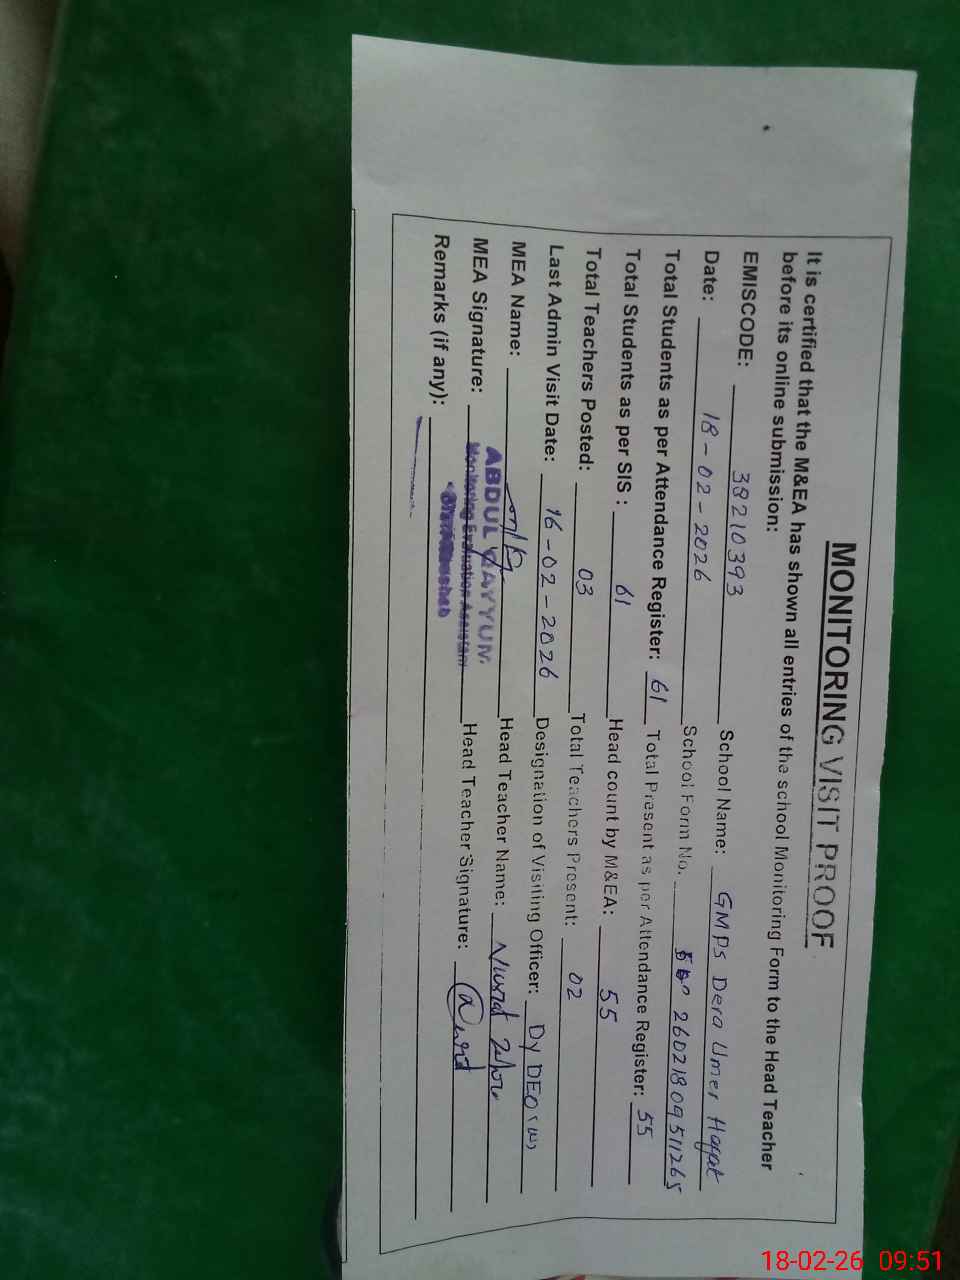 MONITORING VISIT PROOF
It is certified that the M&EA has shown all entries of the school Monitoring Form to the Head Teacher
before its online submission:
EMISCODE: 38210393 School Name: GMPS Dera Umer Hayat
Date: 18-02-2026 School Form No. 26021809511265
Total Students as per Attendance Register: 61 Total Present as per Attendance Register: 55
Total Students as per SIS : 61 Head count by M&EA: 55
Total Teachers Posted: 03 Total Teachers Present: 02
Last Admin Visit Date: 16-02-2026 Designation of Visiting Officer: Dy DEO (W)
MEA Name: Head Teacher Name: Nusrat
MEA Signature: ABDUL QAYYUM Head Teacher Signature:
Monitoring Evaluation Assistant
Remarks (if any):
18-02-26 09:51